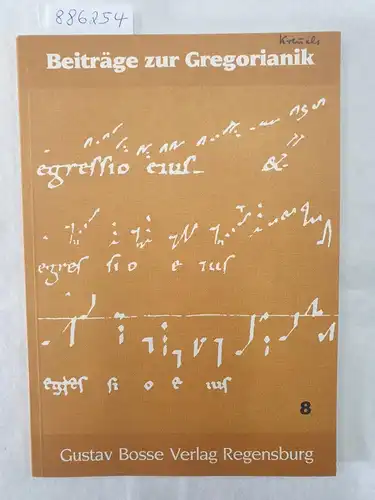 886254
Beiträge zur Gregorianik
egressio eius
egres si o e ius
egres si o e ius
8
Gustav Bosse Verlag Regensburg